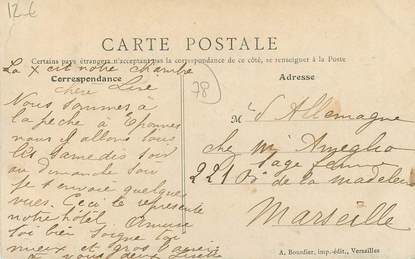 12€
CARTE POSTALE
Certains pays étrangers n'acceptant pas la correspondance de ce côté, se renseigner à la Poste
La X est notre chambre
Correspondance
Adresse
chère
78
Nous sommes à
la pêche à Eponnes
nous y allons tous
les samedis soir
au dimanche soir
je t'envoie quelques
vues. Ceci le représente
notre hôtel. Amuse
toi bien soigne toi
mieux et gros
à vous deux
Mr d'Allemagne
che Mr Ameglio
sage femme
221 Bd de la madeleine
Marseille
A. Bourdier, imp.-édit., Versailles